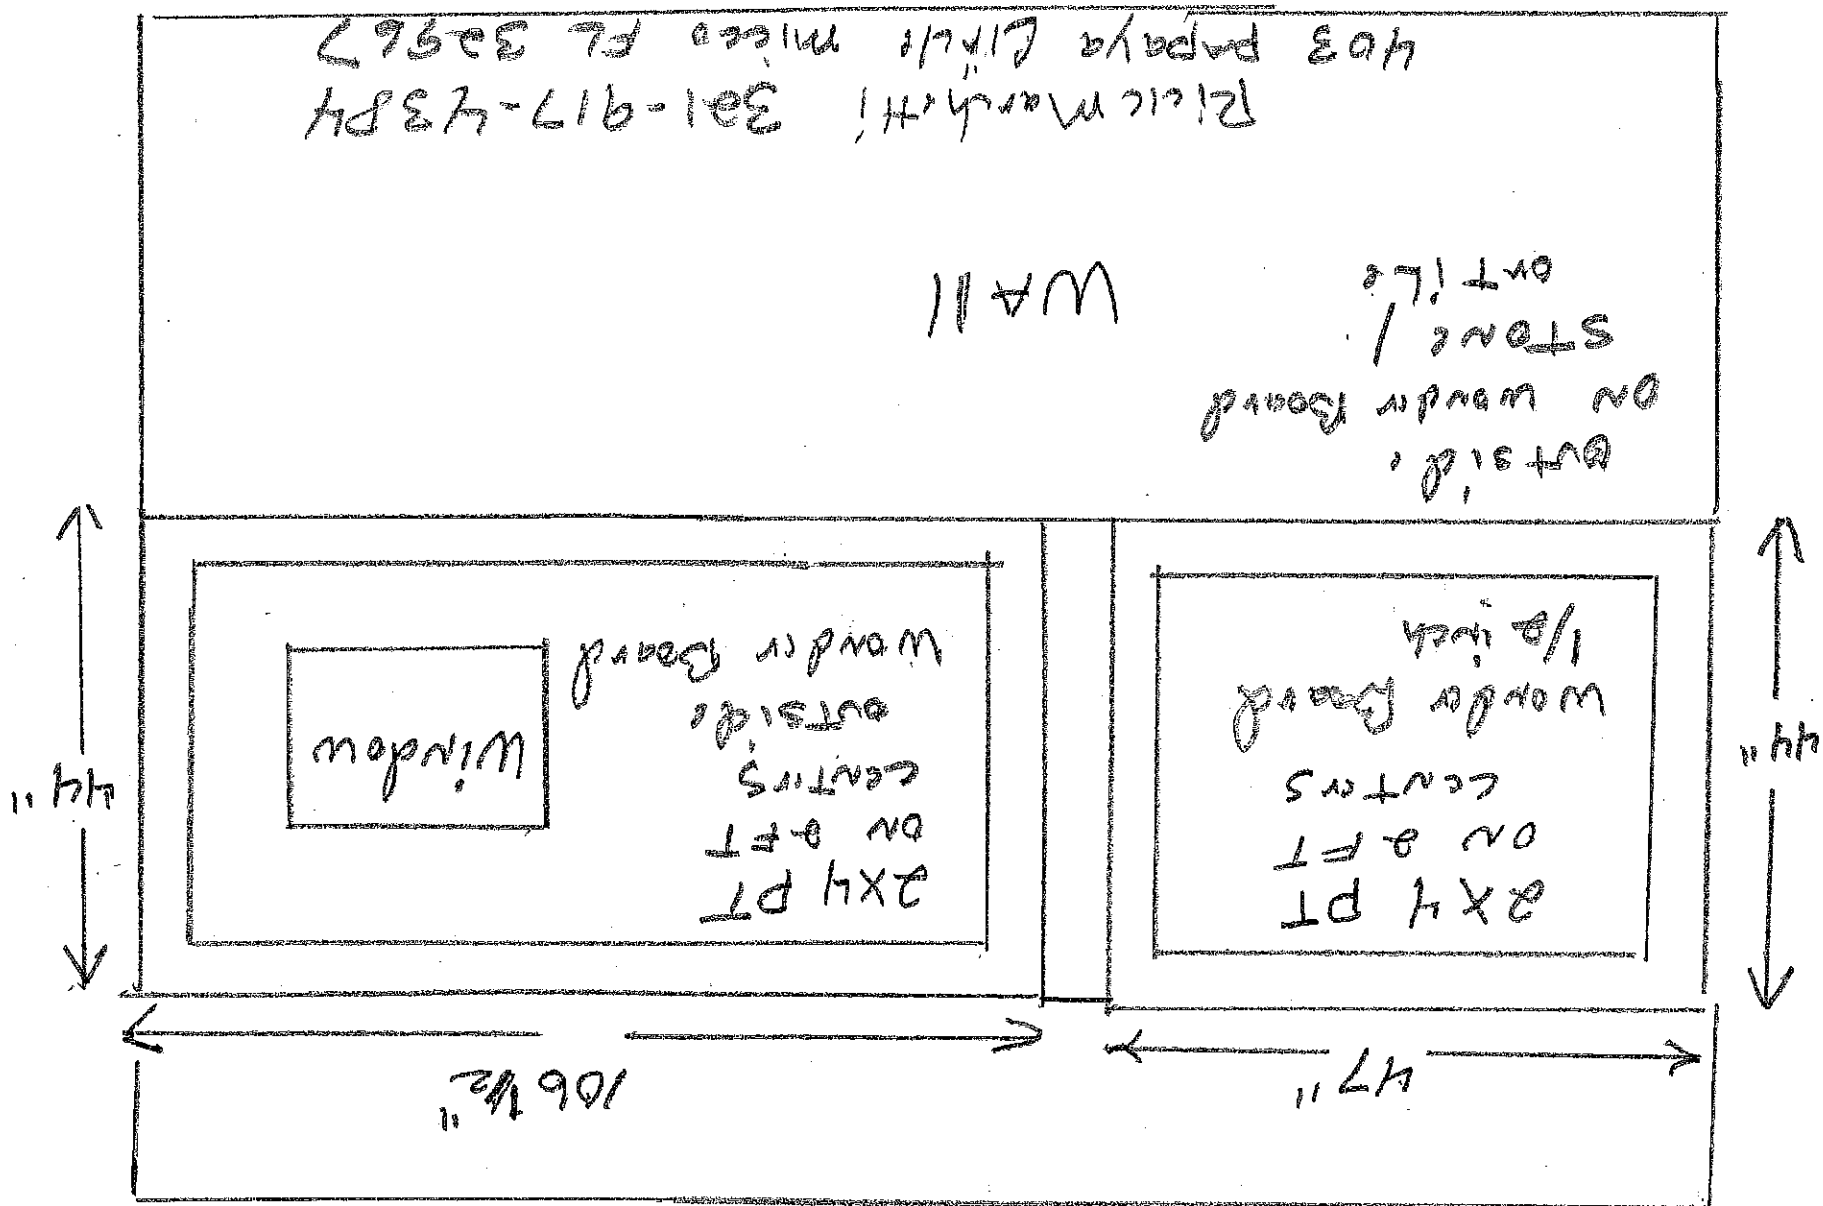 47"
106 1/2"
44"
2X4 PT
ON 2 FT
centers
wonder Board
1/2 inch
2X4 PT
ON 2 FT
centers
outside
Wonder Board
Window
44"
outside
ON wonder Board
STONE /
or Tile
WALL
Rick Marchetti 321-917-4384
403 papaya Circle micco FL 32967